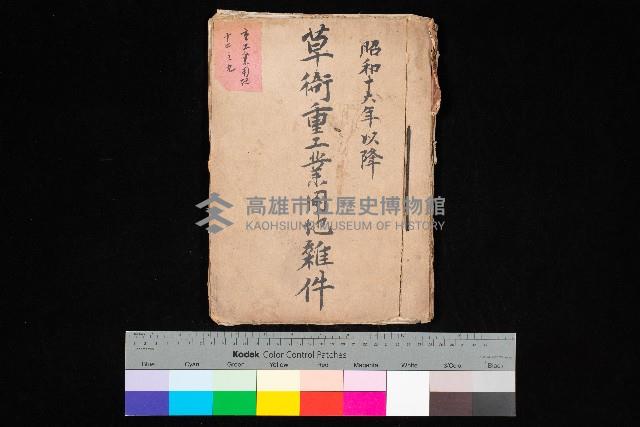 昭和十六年以降
草衙重工業用地雜件
重工業用地
高雄市立歷史博物館
KAOHSIUNG MUSEUM OF HISTORY
Kodak Color Control Patches
Blue Cyan Green Yellow Red Magenta White 3/Color Black